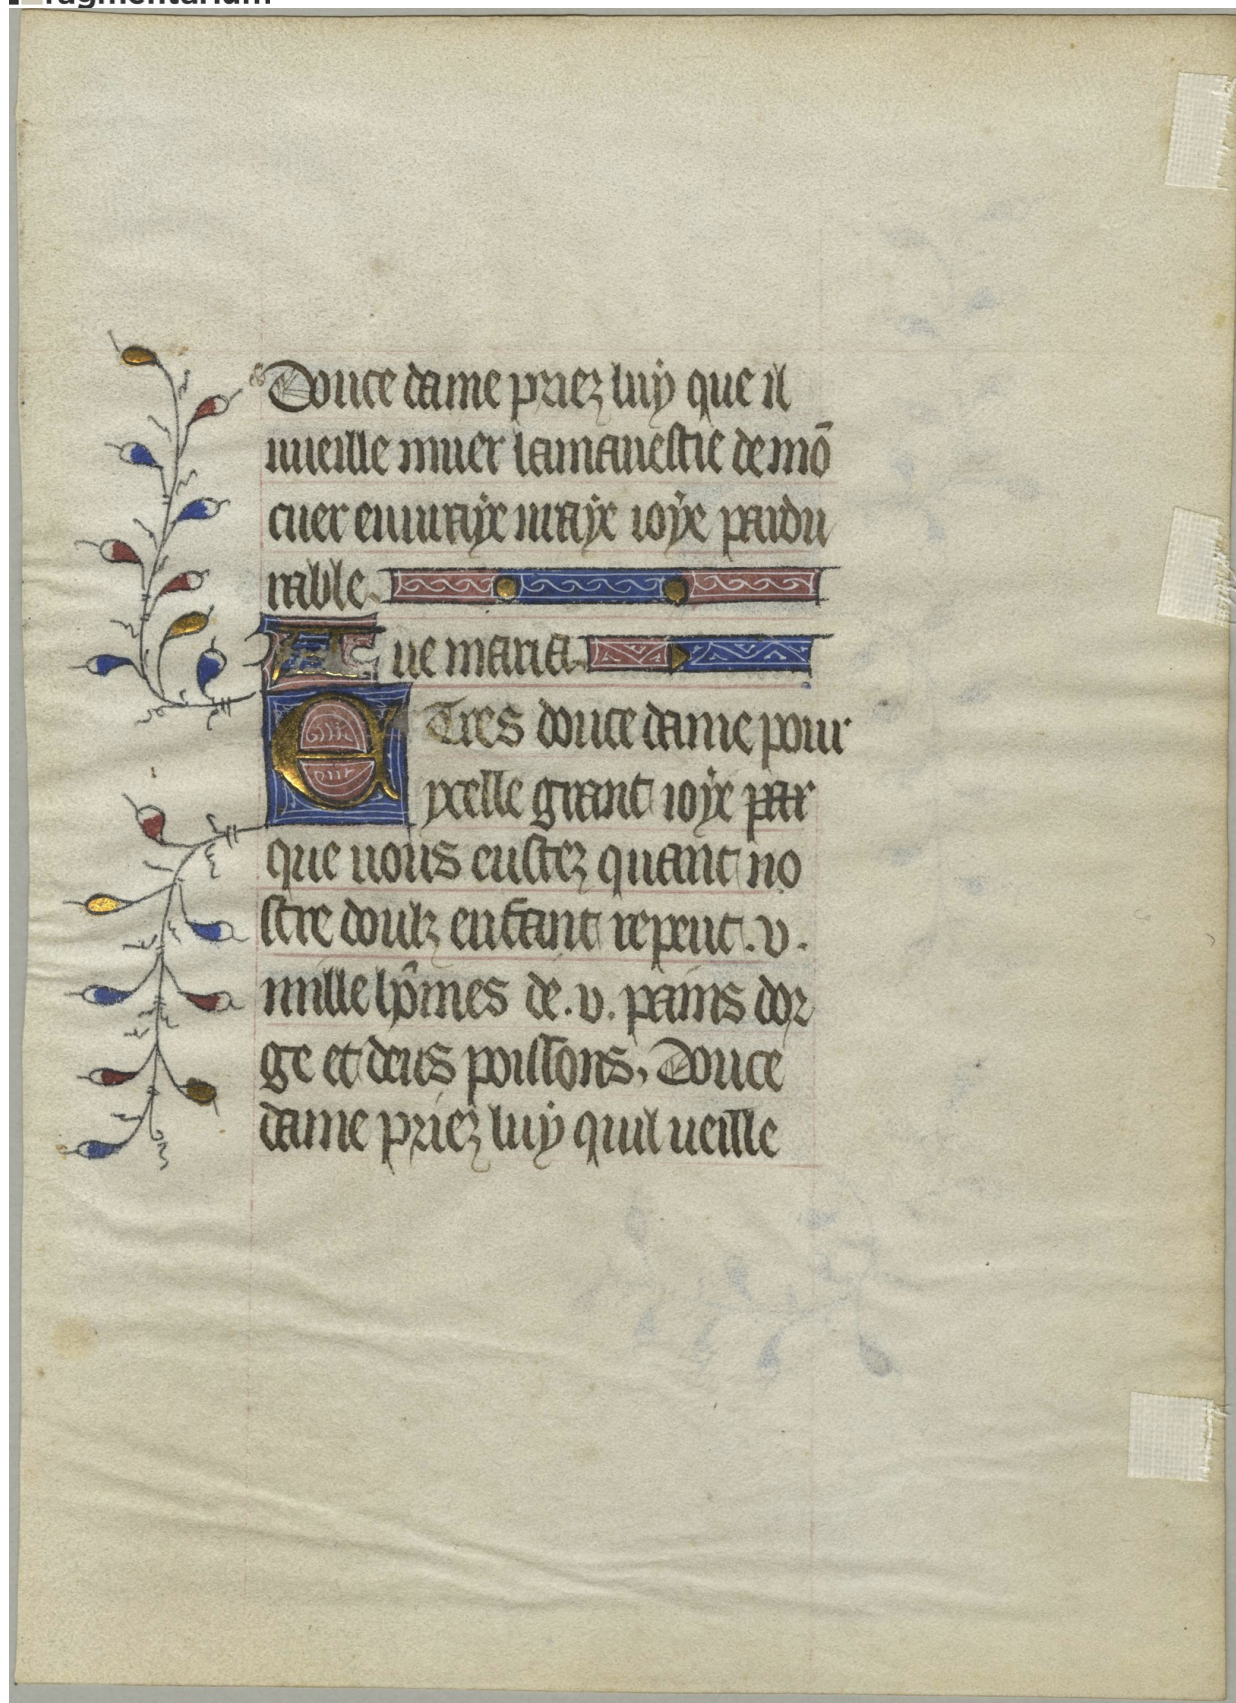 Douce dame priez luy que il
vueille muer la mauestie de mō
cuer en vraye vraye ioye pardu
rable.
Aue maria.
E Tres douce dame pour
ycelle grant ioye par
que vous eustez quant no
stre doulz enfant reput .v.
mille hōmes de .v. pains dor
ge et deus poissons, Douce
dame priez luy quil ueille